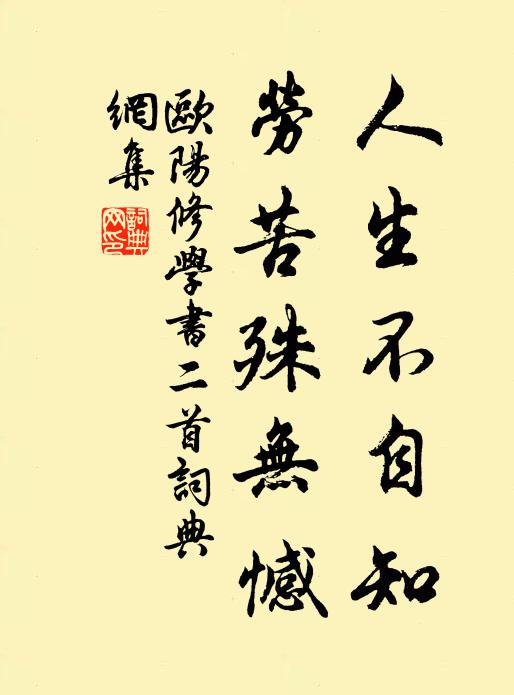 人生不自知
勞苦殊無憾
歐陽修學書二首詞典
網集
詞典
网印